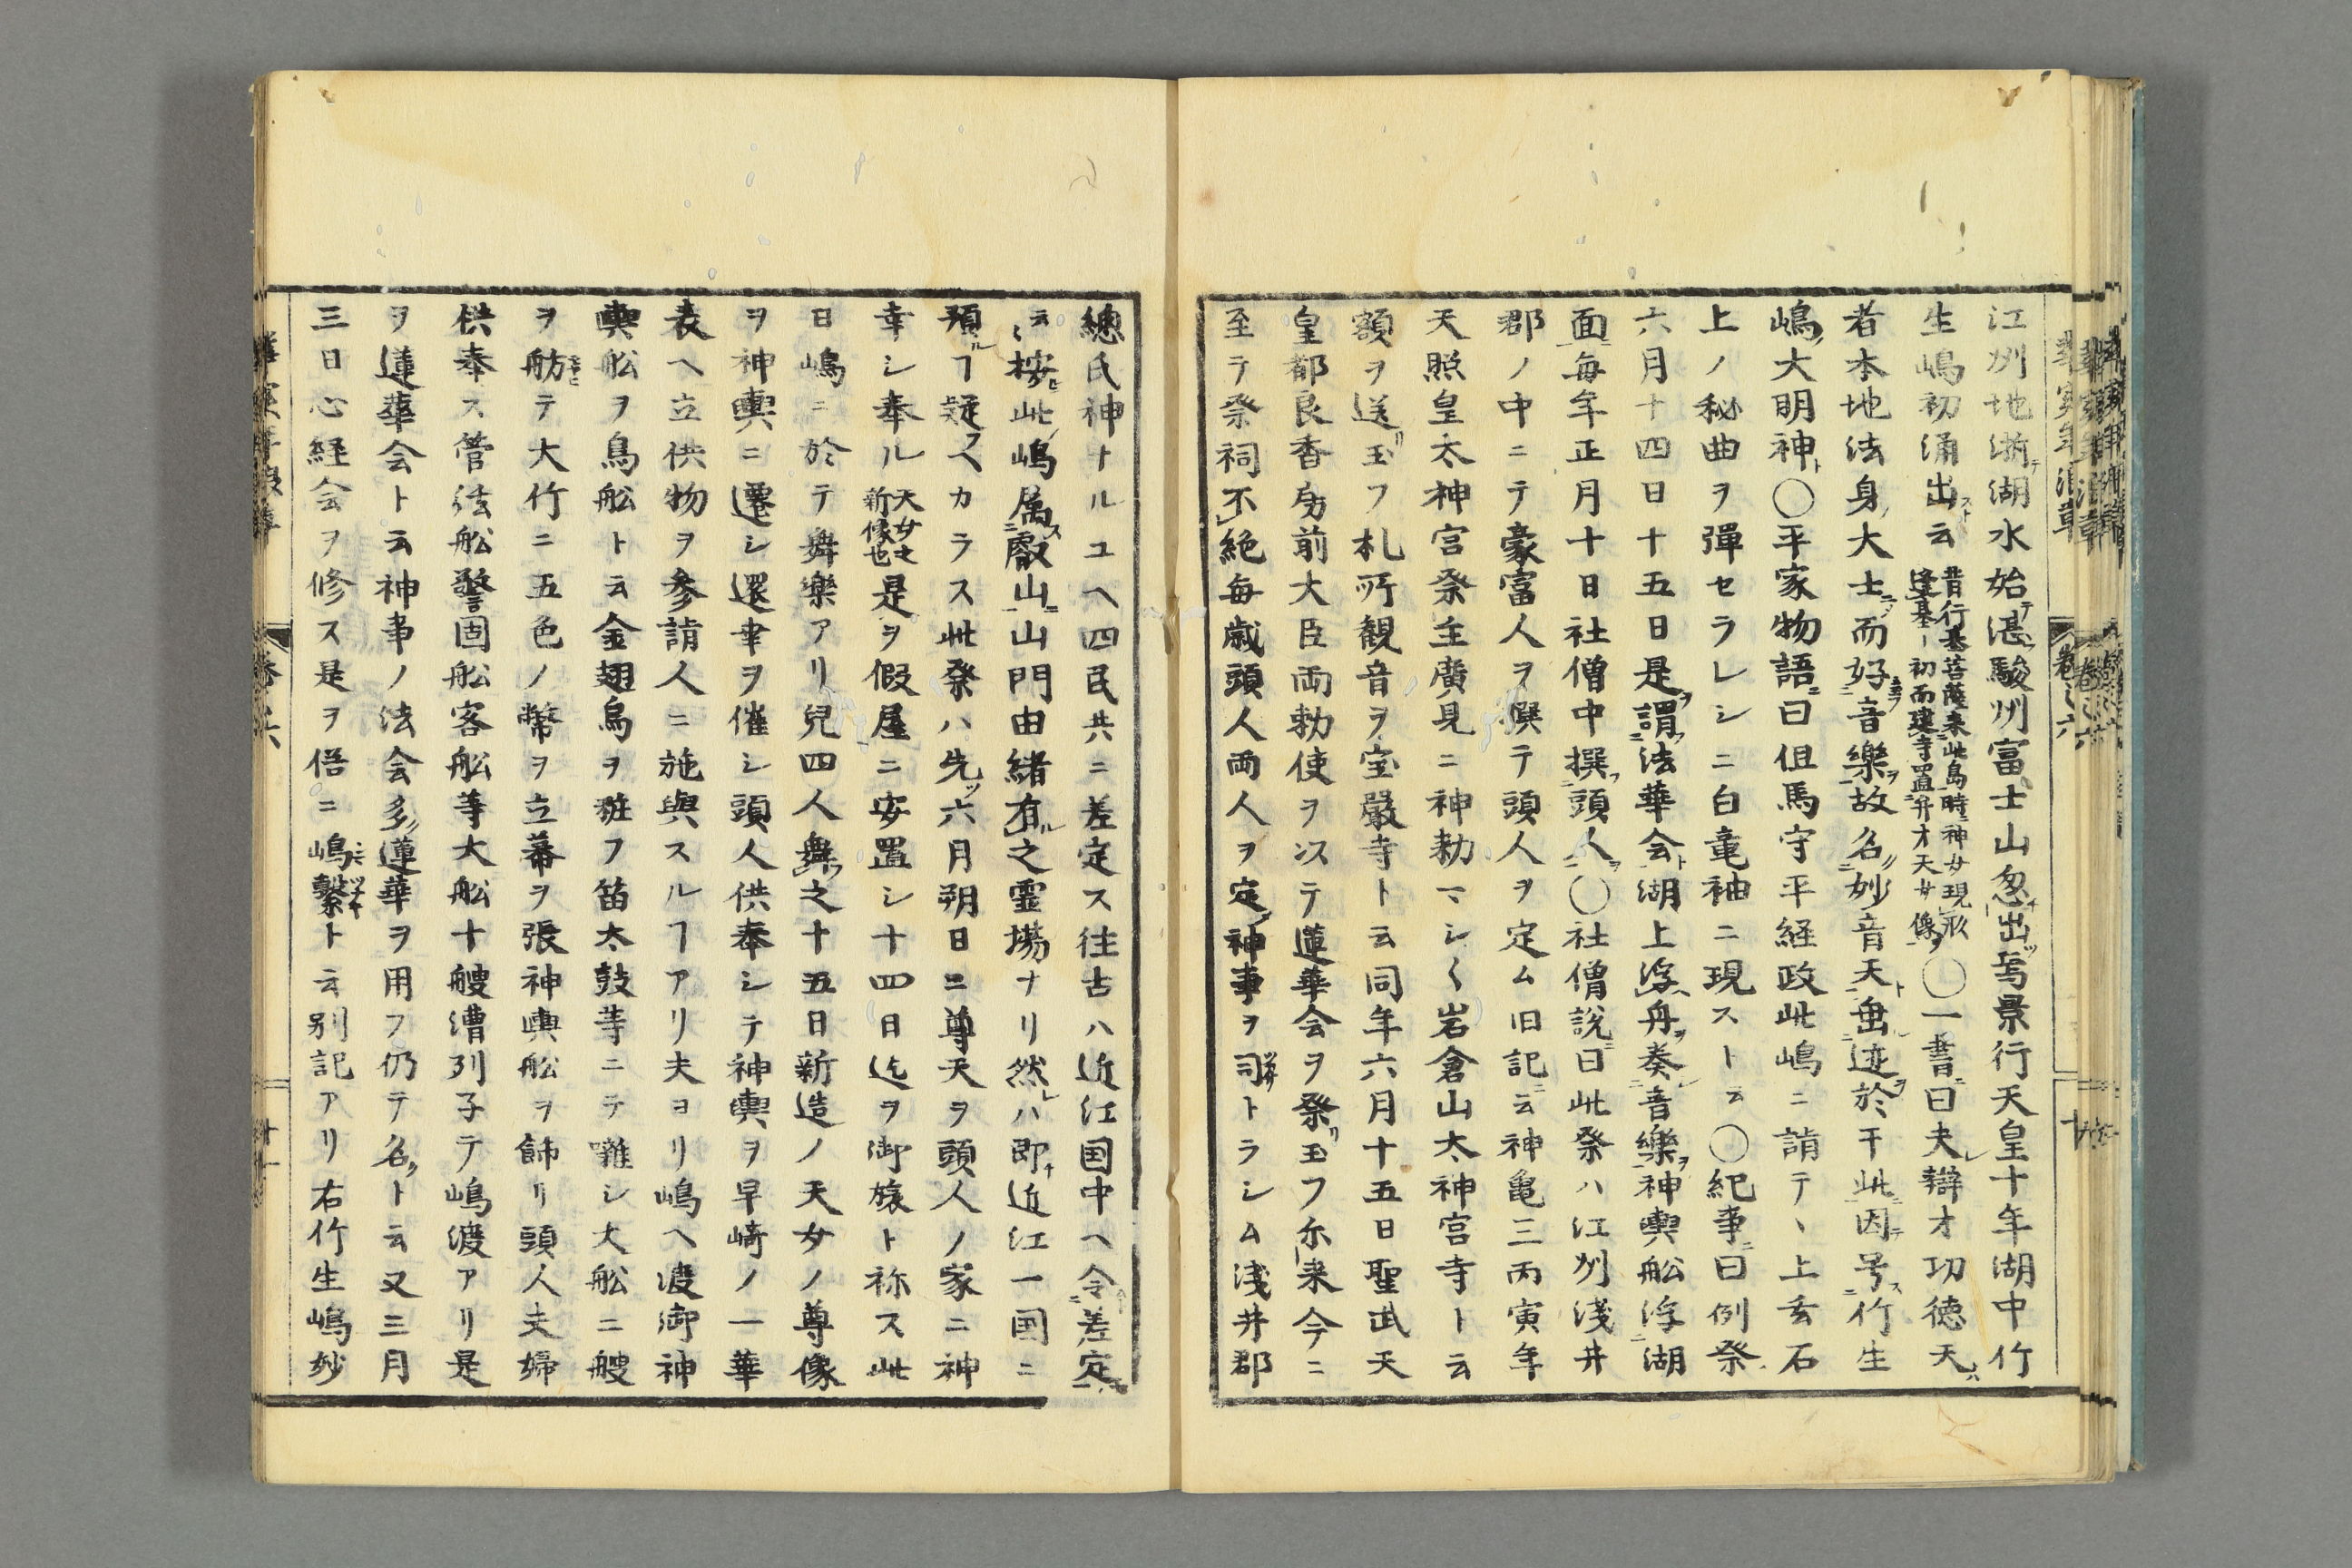 江州地漸湖水始湛駿州富士山忽出焉景行天皇十年湖中竹
生嶋初涌出云昔行基菩薩来此島時神女現形
逢基初而建寺置弁才天女像〇一書曰夫辯才功徳天
者本地法身大士而好音樂故名妙音天垂迹於干此因号竹生
嶋大明神〇平家物語曰但馬守平経政此嶋ニ詣テ、上玄石
上ノ秘曲ヲ彈セラレシニ白竜袖ニ現スト云〇紀事曰例祭
六月十四日十五日是謂法華会湖上浮舟奏音樂神輿舩浮湖
面毎年正月十日社僧中撰頭人〇社僧説曰此祭ハ江州淺井
郡ノ中ニテ豪富人ヲ撰テ頭人ヲ定ム旧記云神亀三丙寅年
天照皇太神宮祭主廣見ニ神勅マシ〱岩倉山太神宮寺ト云
額ヲ送玉フ札所観音ヲ宝嚴寺ト云同年六月十五日聖武天
皇都良香房前大臣両勅使ヲ以テ蓮華会ヲ祭玉フ尓来今ニ
至テ祭祠不絶毎歳頭人両人ヲ定神事ヲ司トラシム淺井郡
總氏神トルユヘ四民共ニ差定ス往古ハ近江国中ヘ令差定
云〻按此嶋属叡山山門由緒有之霊場ナリ然ハ即近江一国ニ
預ルヿ疑ヘカラス此祭ハ先六月朔日ニ尊天ヲ頭人ノ家ニ神
幸シ奉ル天女之
新像也是ヲ假屋ニ安置シ十四日迄ヲ御旅ト祢ス此
日嶋ニ於テ舞樂アリ兒四人舞之十五日新造ノ天女ノ尊像
ヲ神輿ニ遷シ還幸ヲ催シ頭人供奉シテ神輿ヲ早崎ノ一華
表ヘ立供物ヲ参詣人ニ施與スルヿアリ夫ヨリ嶋ヘ渡御神
輿舩ヲ鳥舩ト云金翅鳥ヲ粧フ笛太鼓等ニテ囃シ大舩二艘
ヲ舫テ大竹ニ五色ノ幣ヲ立幕ヲ張神輿舩ヲ飾リ頭人夫婦
供奉ス管法舩警固舩客舩等大舩十艘漕列子テ嶋渡アリ是
ヲ蓮華会ト云神事ノ法会多蓮華ヲ用フ仍テ名ト云又三月
三日心経会ヲ修ス是ヲ俉ニ嶋繫ト云別記アリ右竹生嶋妙